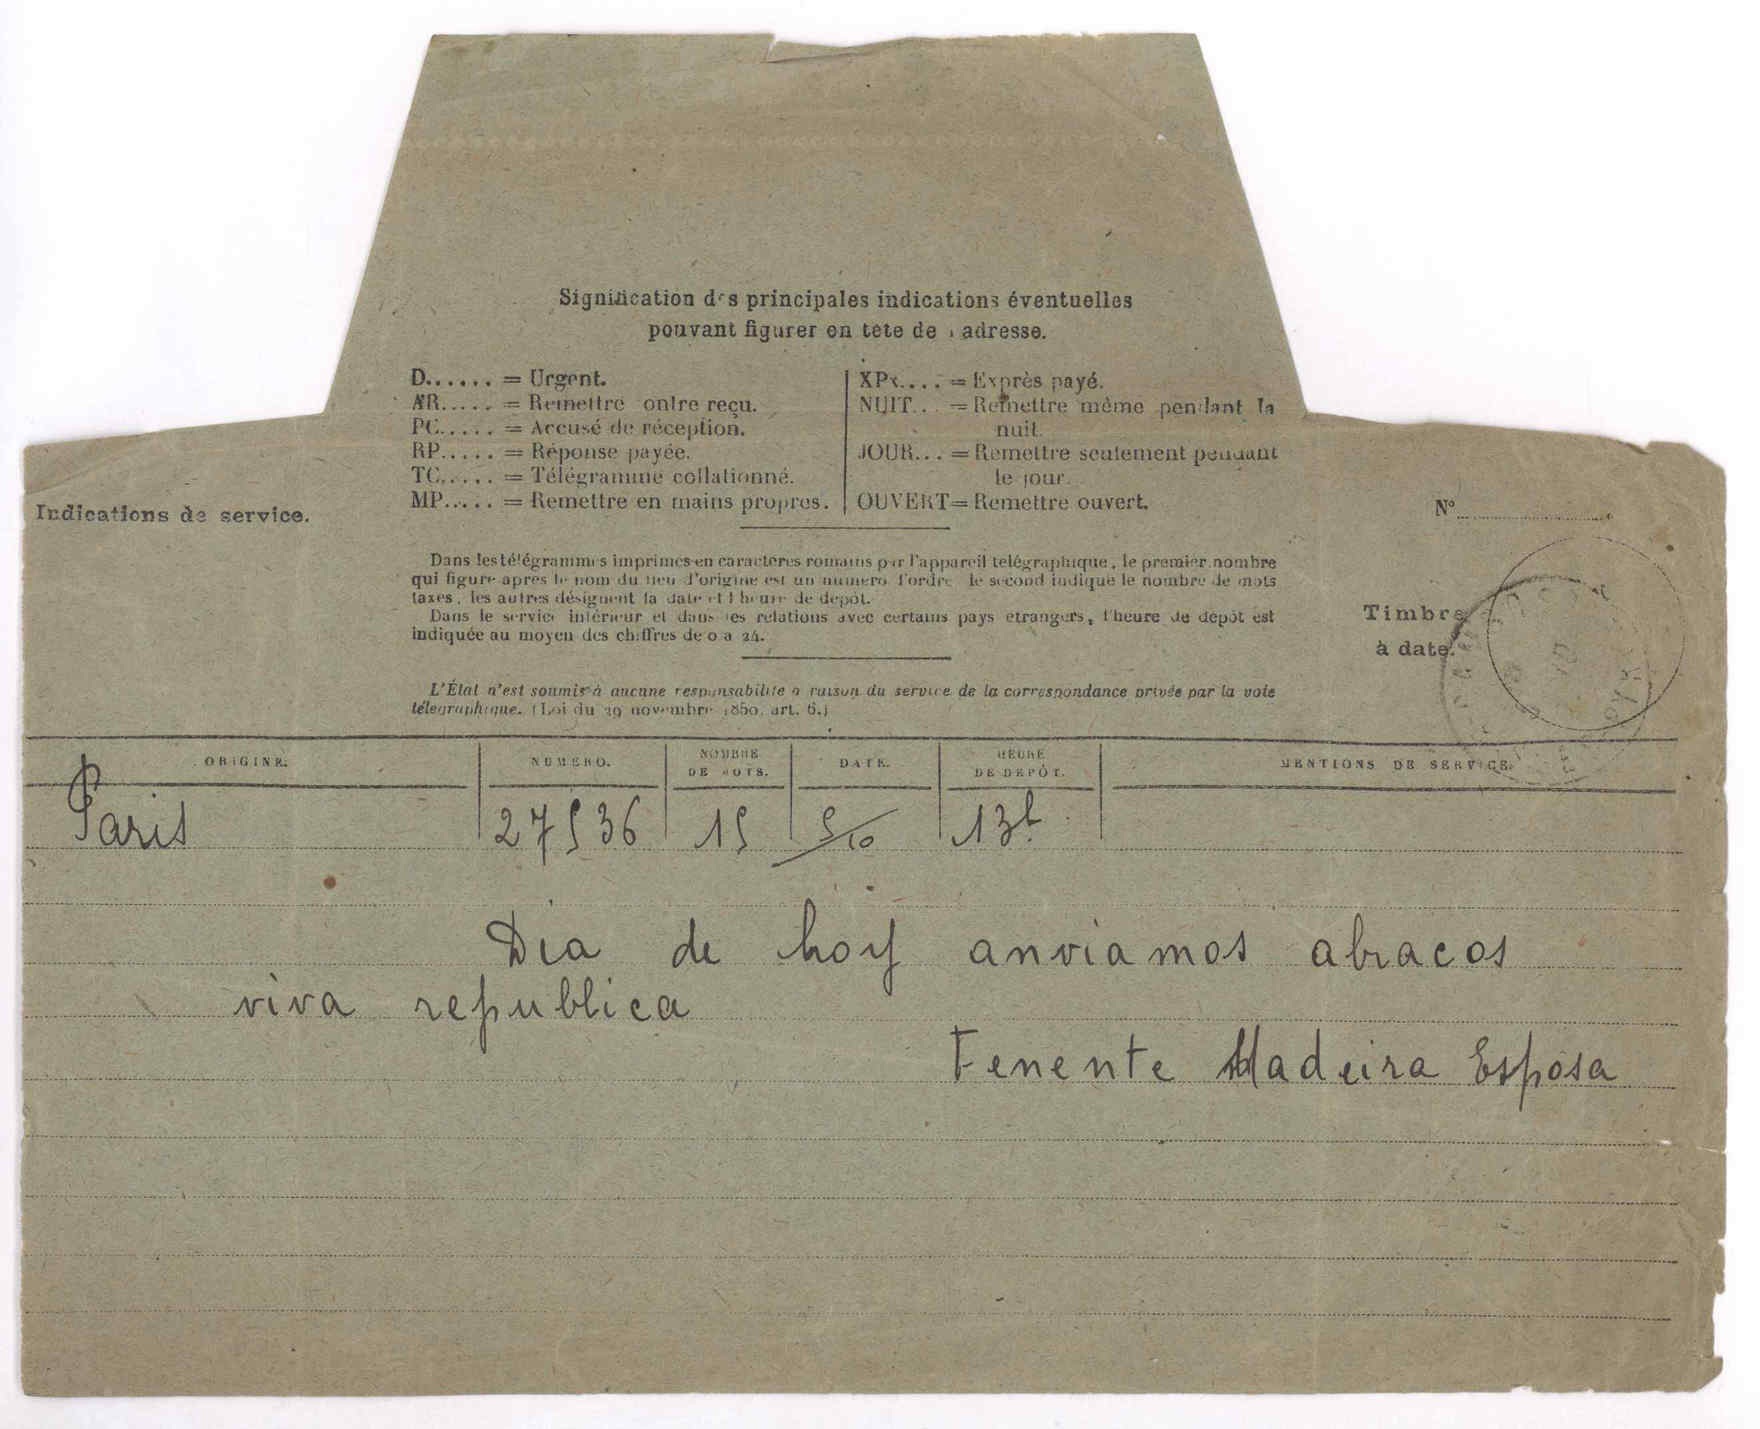 Signification des principales indications éventuelles
pouvant figurer en tête de l'adresse.
D...... = Urgent.
AR..... = Remettre contre reçu.
PC..... = Accusé de réception.
RP..... = Réponse payée.
TC..... = Télégramme collationné.
MP..... = Remettre en mains propres.
XPx.... = Exprès payé.
NUIT... = Remettre même pendant la
nuit.
JOUR... = Remettre seulement pendant
le jour.
OUVERT = Remettre ouvert.
Indications de service.
N°
Dans les télégrammes imprimés en caractères romains par l'appareil télégraphique, le premier nombre
qui figure après le nom du lieu d'origine est un numéro d'ordre, le second indique le nombre de mots
taxés, les autres désignent la date et l'heure de dépôt.
Dans le service intérieur et dans les relations avec certains pays étrangers, l'heure de dépôt est
indiquée au moyen des chiffres de 0 à 24.
Timbre
à date.
L'État n'est soumis à aucune responsabilité à raison du service de la correspondance privée par la voie
télégraphique. (Loi du 29 novembre 1850, art. 6.)
ORIGINE. NUMÉRO. NOMBRE DE MOTS. DATE. HEURE DE DÉPÔT. MENTIONS DE SERVICE.
Paris 27536 15 5/10 13h
Dia de hoy anviamos abracos
viva republica
Tenente Madeira Esposa